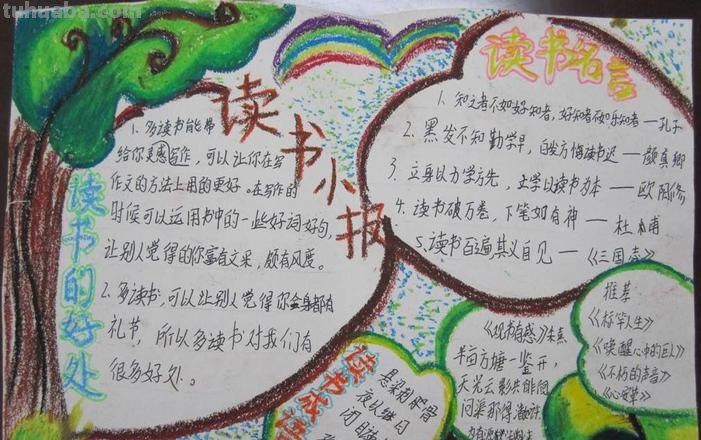 tuhuaba.com
读书小报
读书的好处
1. 多读书能带
给你灵感写作，可以让你在写
作文的方法上用的更好。在写作的
时候可以运用书中的一些好词好句，
让别人觉得的你富有文采，颇有风度。
2. 多读书，可以让别人觉得你全身都有
礼节，所以多读书对我们有
很多好处。
读书名言
1、知之者不如好知者，好知者不如乐知者——孔子
2、黑发不知勤学早，白发方悔读书迟——颜真卿
3、立身以力学为先，立学以读书为本——欧阳修
4、读书破万卷，下笔如有神——杜甫
5、读书百遍，其义自见——《三国志》
悬梁刺股
夜以继日
《观书有感》朱熹
半亩方塘一鉴开，
天光云影共徘徊
问渠那得清如许
推荐
《唤醒心中的巨人》
《不朽的声音》